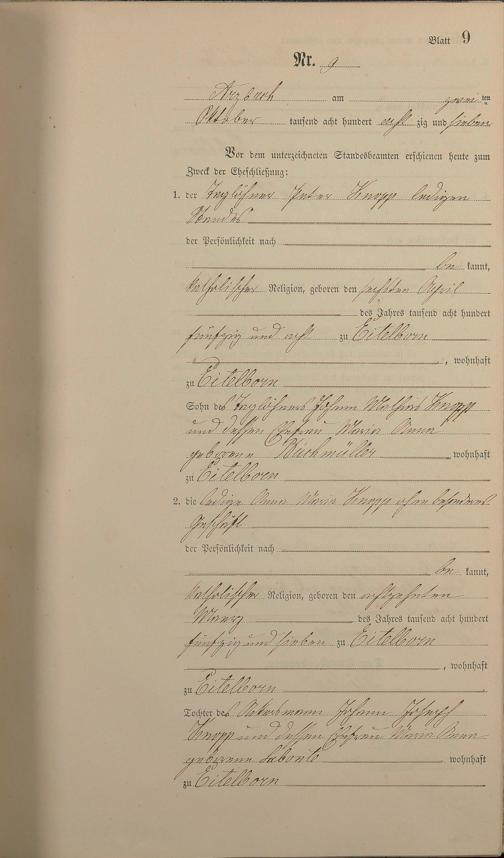 Blatt 9
Nr. 9
Arzbach am zwei ten
Oktober tausend acht hundert acht zig und sieben
Vor dem unterzeichneten Standesbeamten erschienen heute zum
Zweck der Eheschließung:
1. der Taglöhner Peter Knopp ledigen
Standes
der Persönlichkeit nach
be kannt,
katholischer Religion, geboren den sechsten April
des Jahres tausend acht hundert
fünfzig und acht zu Eitelborn
, wohnhaft
zu Eitelborn
Sohn des Taglöhners Johann Mathias Knopp
und dessen Ehefrau Maria Anna
geborene Bachmüller wohnhaft
zu Eitelborn
2. die ledige Anna Maria Knopp ohne besonderes
Geschäft
der Persönlichkeit nach
be kannt,
katholischer Religion, geboren den achtzehnten
März des Jahres tausend acht hundert
fünfzig und sieben zu Eitelborn
, wohnhaft
zu Eitelborn
Tochter des Ackersmann Johann Joseph
Knopp und dessen Ehefrau Maria Anna
geborene Labonte wohnhaft
zu Eitelborn